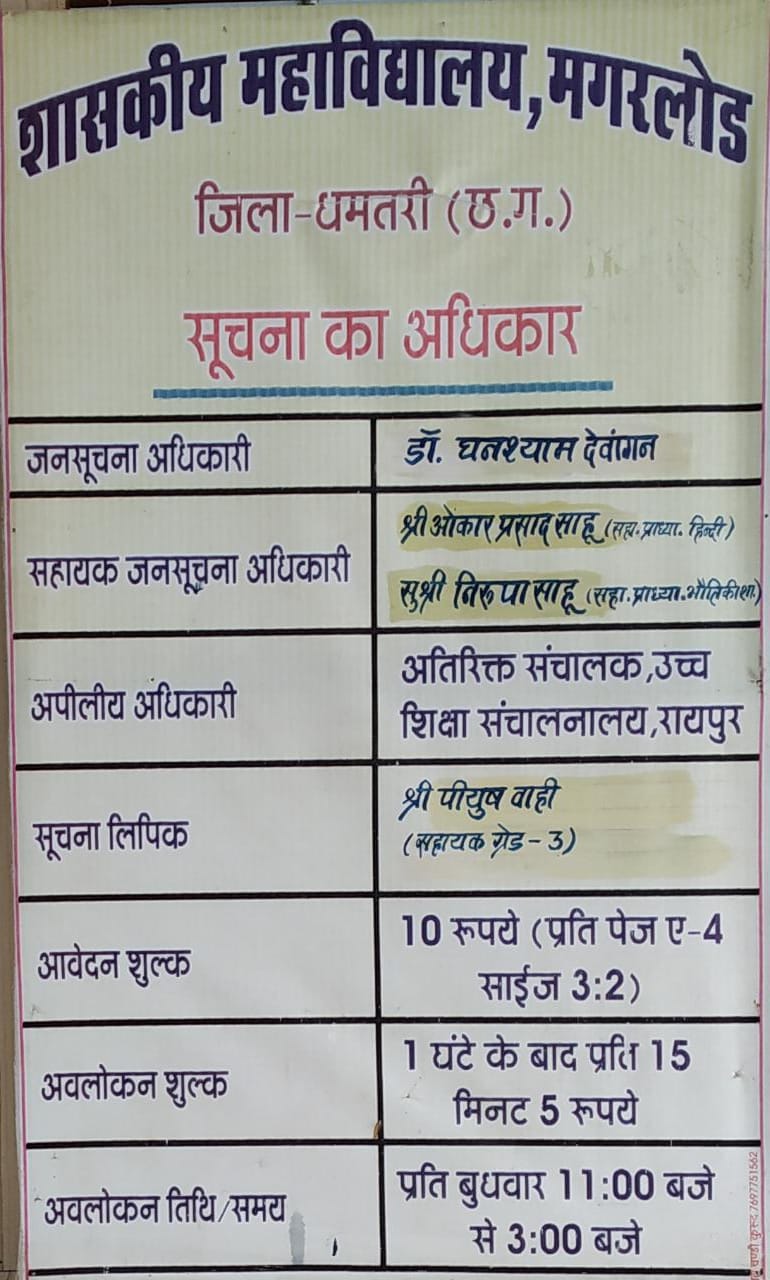 शासकीय महाविद्यालय,मगरलोड
जिला-धमतरी (छ.ग.)
सूचना का अधिकार
जनसूचना अधिकारी
डॉ. घनश्याम देवांगन
सहायक जनसूचना अधिकारी
श्री ओंकार प्रसाद साहू (सहा.प्राध्या. हिन्दी)
सुश्री निरुपा साहू (सहा.प्राध्या.भौतिकीशा.)
अपीलीय अधिकारी
अतिरिक्त संचालक,उच्च
शिक्षा संचालनालय,रायपुर
सूचना लिपिक
श्री पीयुष वाही
(सहायक ग्रेड-3)
आवेदन शुल्क
10 रूपये (प्रति पेज ए-4
साईज 3:2)
अवलोकन शुल्क
1 घंटे के बाद प्रति 15
मिनट 5 रूपये
अवलोकन तिथि/समय
प्रति बुधवार 11:00 बजे
से 3:00 बजे
कुरूद 7697751562